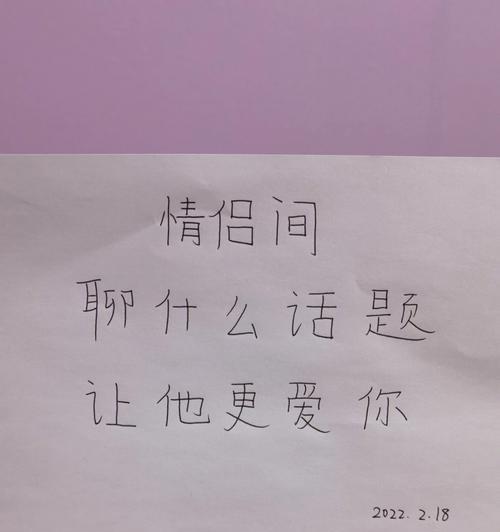 情侣间
聊什么话题
让他更爱你
2022.2.18